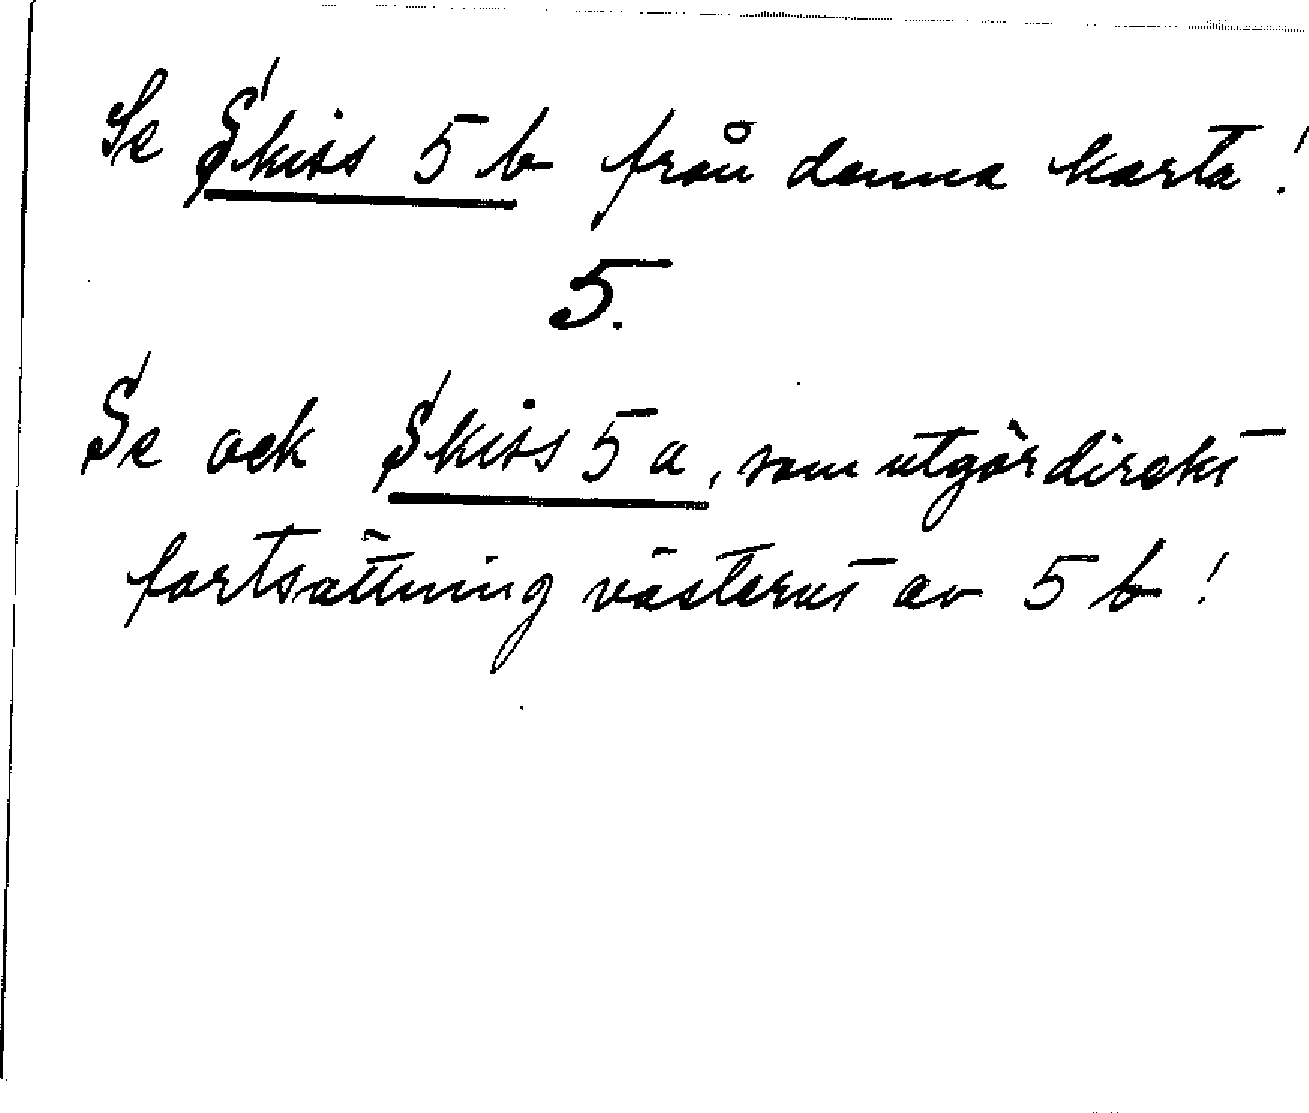 Se Skiss 5 b från denna karta!
5.
Se ock Skiss 5 a, som utgör direkt
fortsättning västerut av 5 b!